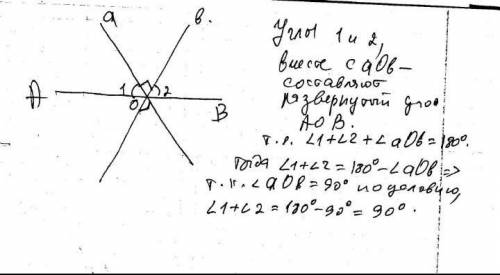 a
в.
1
2
A
O
B
Углы 1 и 2,
вместе с aOb –
составляют
развернутый угол
AOB.
т.е. ∠1+∠2+∠aOb=180°.
тогда ∠1+∠2=180°-∠aOb =>
т.к. ∠aOb=90° по условию,
∠1+∠2=180°-90°=90°.